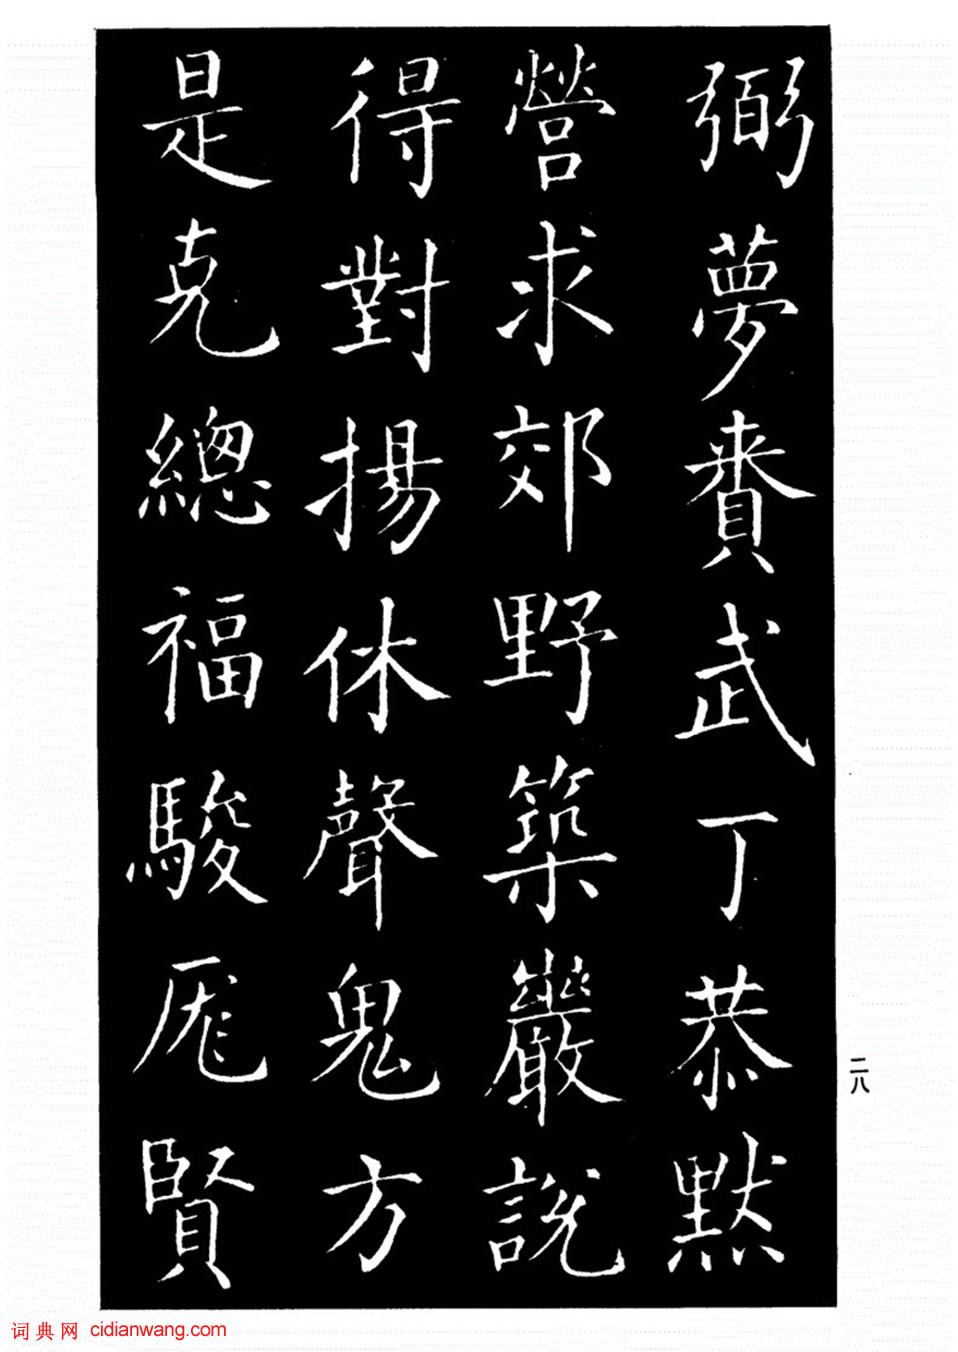 弼夢賚武丁恭默
營求郊野築巖説
得對揚休聲鬼方
是克總福駿厖賢
二八
词典网 cidianwang.com